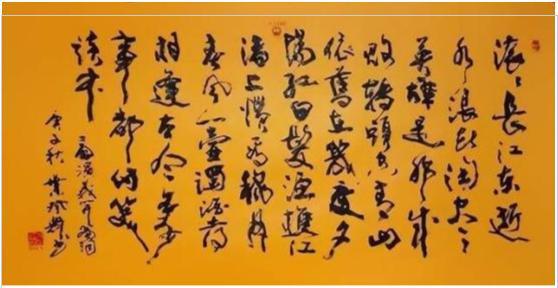 滚滚长江东逝
水浪花淘尽
英雄是非成
败转头空青山
依旧在几度夕
阳红白发渔樵江
渚上惯看秋月
春风一壶浊酒喜
相逢古今多少
事都付笑
谈中
三国演义开篇词
庚子秋